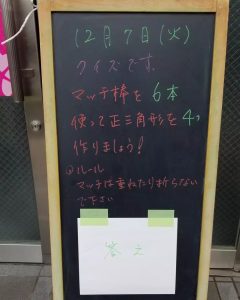 12月7日(火)
クイズです。
マッチ棒を6本
使って正三角形を4つ
作りましょう!
◎ルール
マッチは重ねたり折らない
で下さい
答え